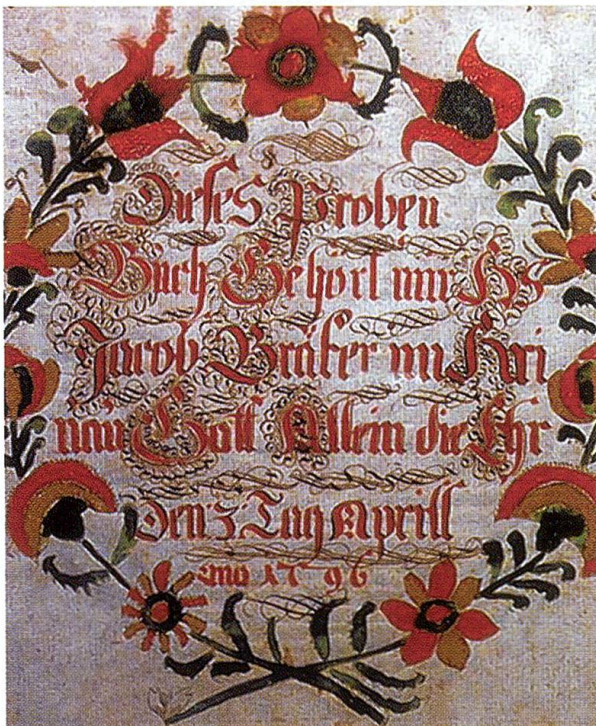 Dieses Proben
Buch Gehört mir Hs
Jacob Bräker im Kri
nau Gott Allein die Ehr
den: 3: Tag Aprill
ano 1796